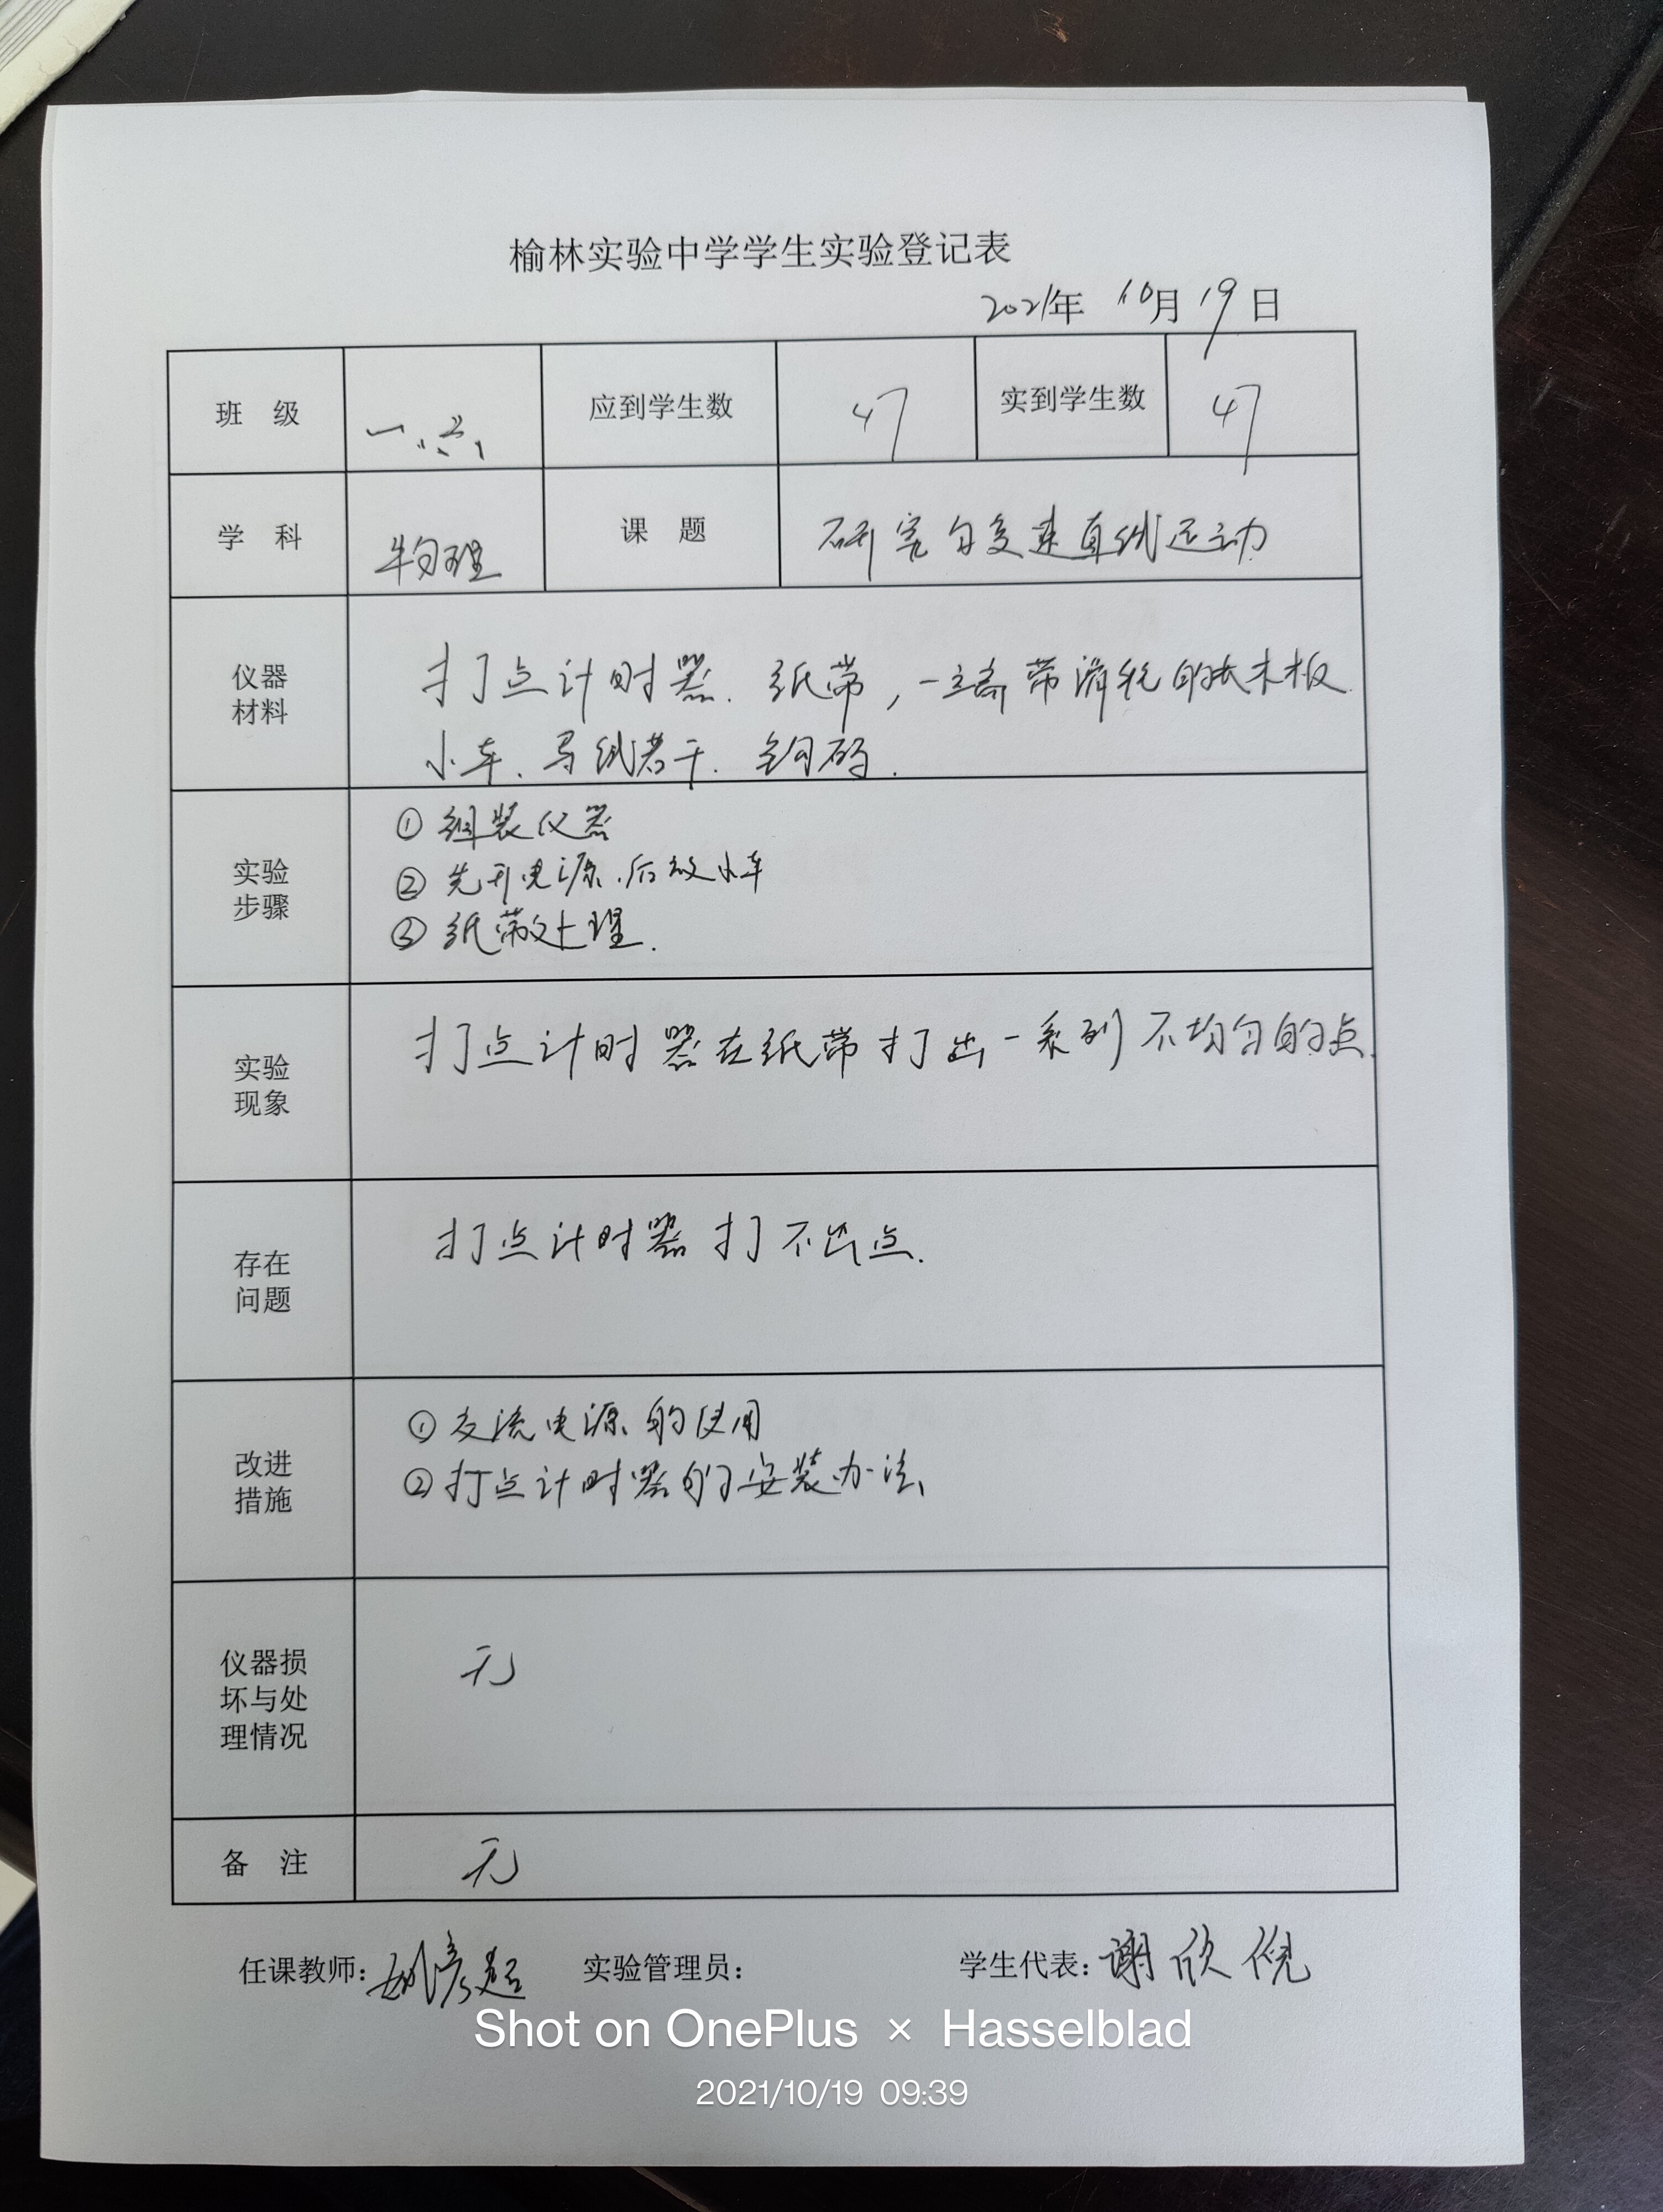 榆林实验中学学生实验登记表
2021年 10月 19日
班 级 一、六 应到学生数 47 实到学生数 47
学 科 物理 课 题 研究匀变速直线运动
仪器
材料
打点计时器、纸带,一端带滑轮的长木板
小车、导线若干、钩码.
实验
步骤
① 组装仪器
② 先开电源.后放小车
③ 纸带处理.
实验
现象
打点计时器在纸带打出一系列不均匀的点.
存在
问题
打点计时器打不出点.
改进
措施
① 交流电源的使用
② 打点计时器的安装办法
仪器损
坏与处
理情况
无
备 注 无
任课教师: 实验管理员: 学生代表:谢欣倪
Shot on OnePlus × Hasselblad
2021/10/19 09:39